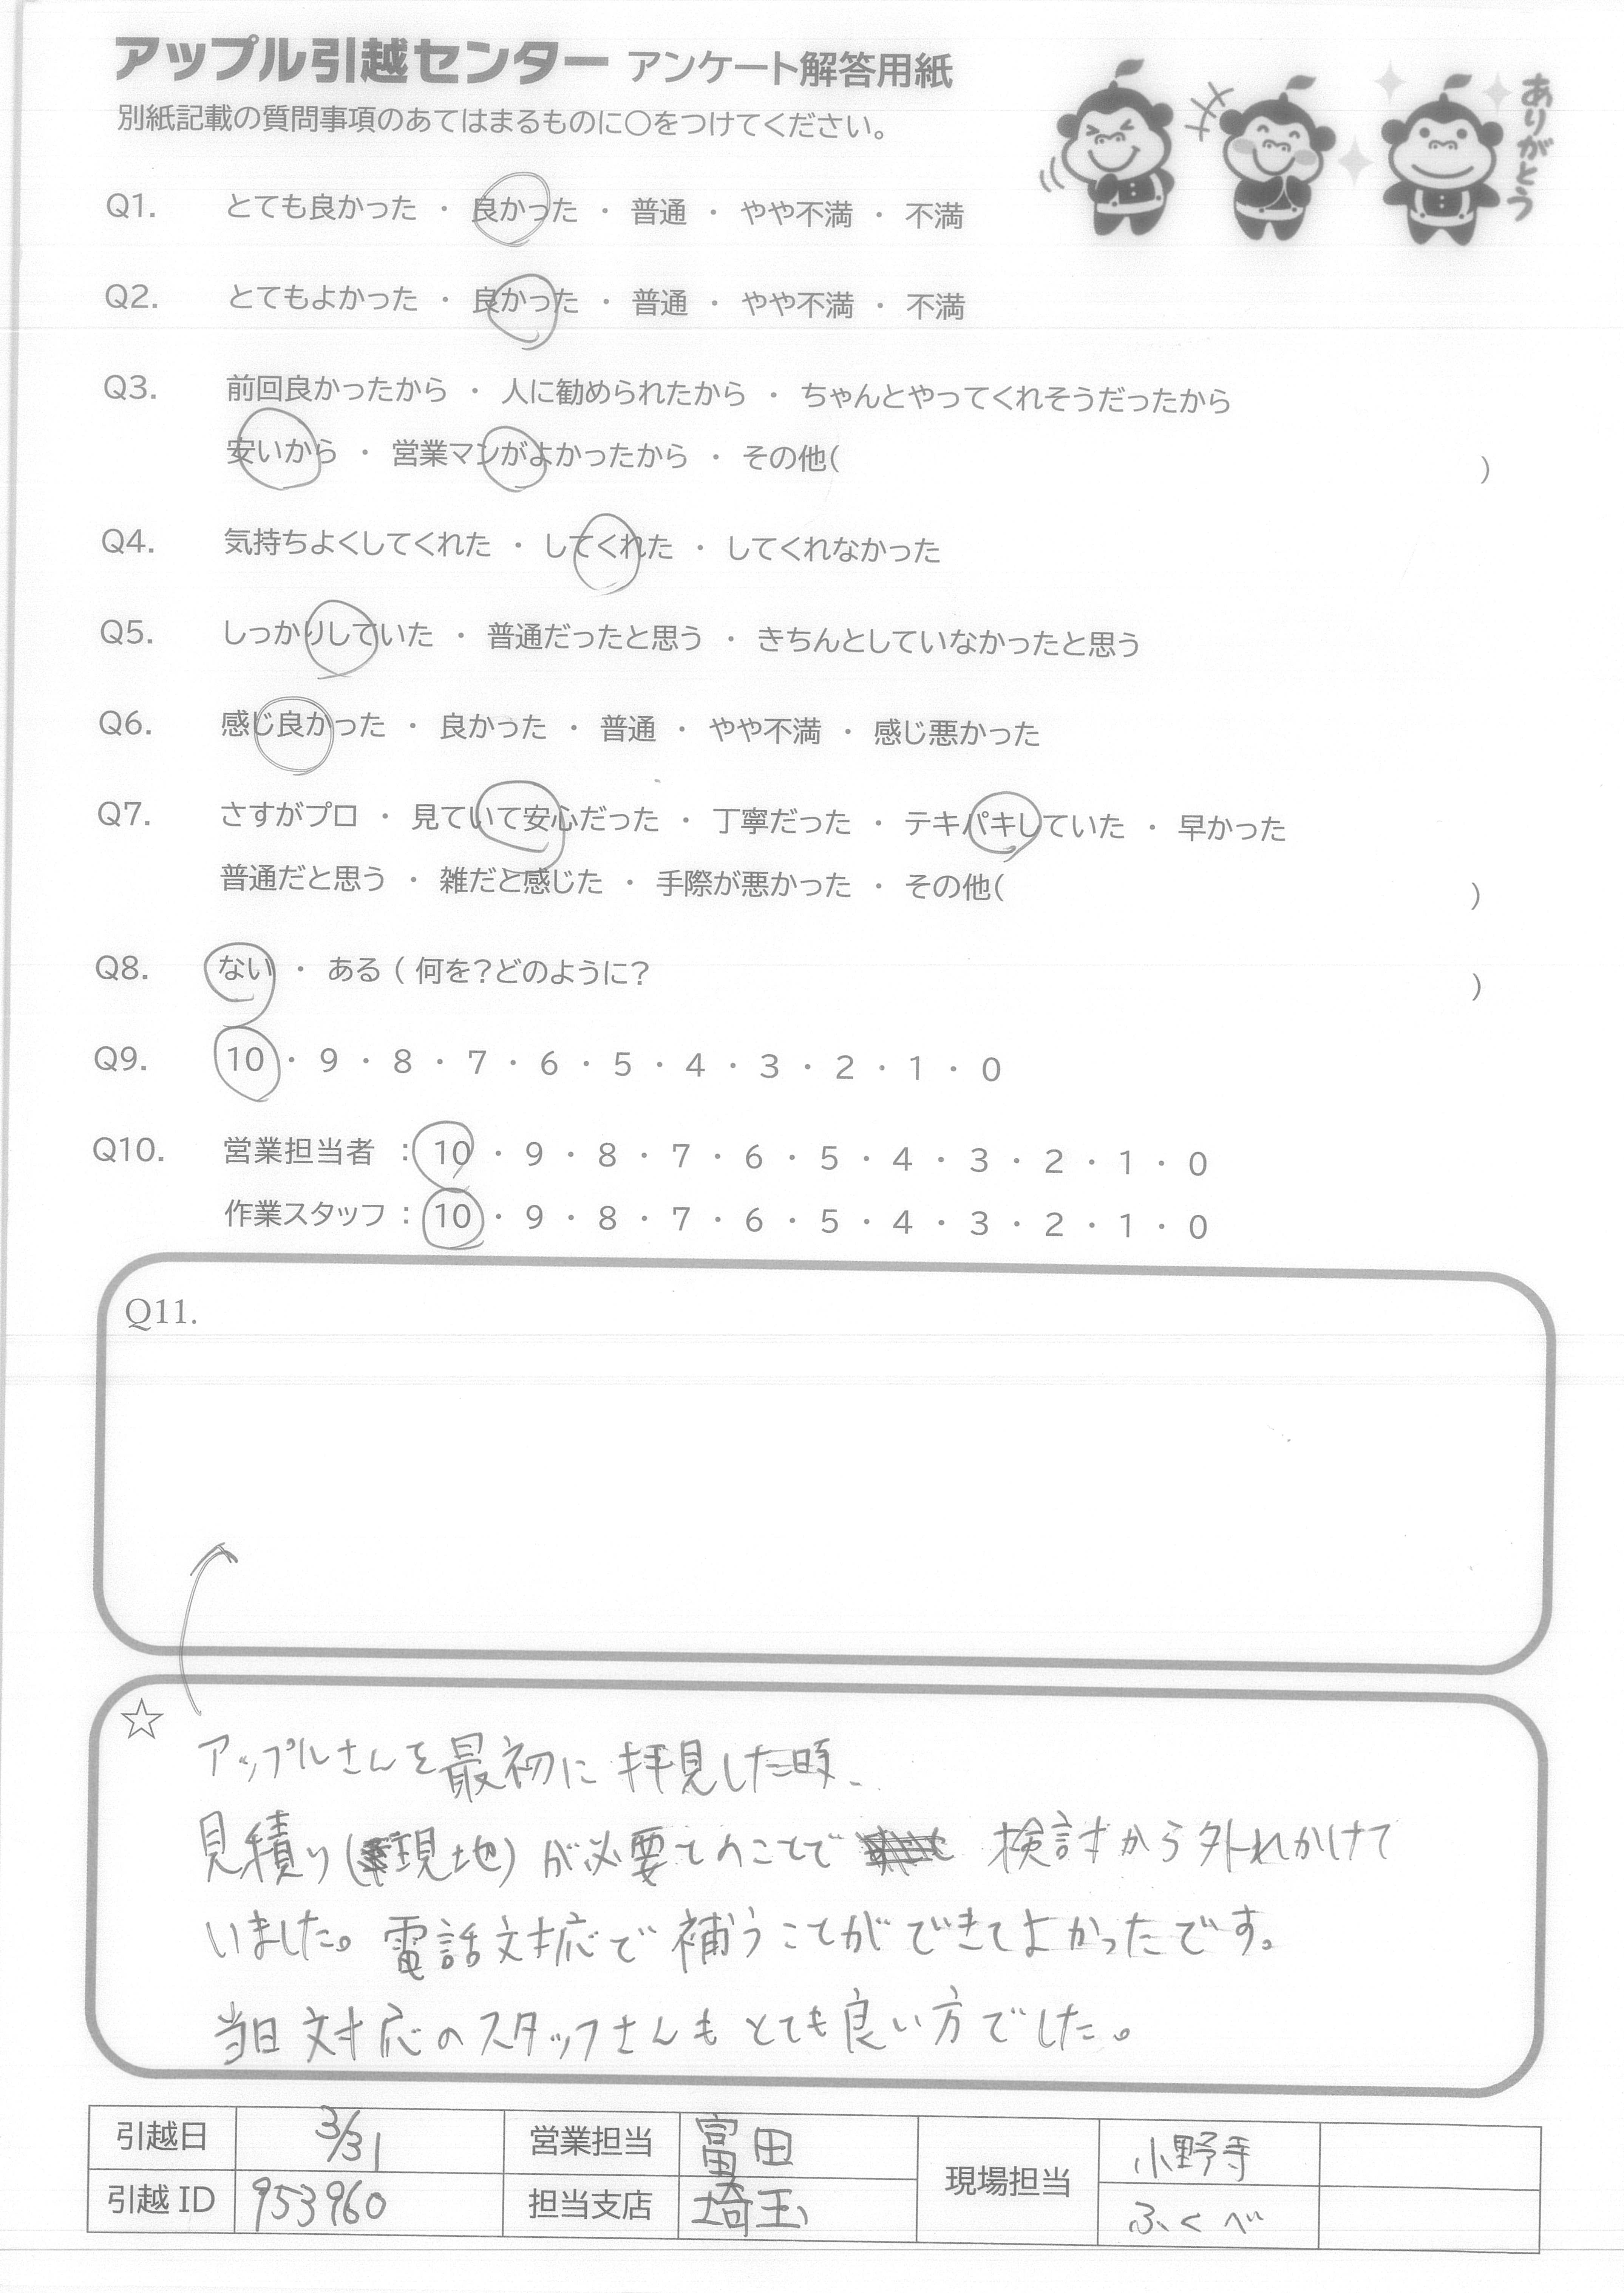 アップル引越センター アンケート解答用紙
別紙記載の質問事項のあてはまるものに○をつけてください。
ありがとう
Q1. とても良かった ・ 良かった ・ 普通 ・ やや不満 ・ 不満
Q2. とてもよかった ・ 良かった ・ 普通 ・ やや不満 ・ 不満
Q3. 前回良かったから ・ 人に勧められたから ・ ちゃんとやってくれそうだったから
安いから ・ 営業マンがよかったから ・ その他( )
Q4. 気持ちよくしてくれた ・ してくれた ・ してくれなかった
Q5. しっかりしていた ・ 普通だったと思う ・ きちんとしていなかったと思う
Q6. 感じ良かった ・ 良かった ・ 普通 ・ やや不満 ・ 感じ悪かった
Q7. さすがプロ ・ 見ていて安心だった ・ 丁寧だった ・ テキパキしていた ・ 早かった
普通だと思う ・ 雑だと感じた ・ 手際が悪かった ・ その他( )
Q8. ない ・ ある ( 何を?どのように? )
Q9. 10 ・ 9 ・ 8 ・ 7 ・ 6 ・ 5 ・ 4 ・ 3 ・ 2 ・ 1 ・ 0
Q10. 営業担当者 : 10 ・ 9 ・ 8 ・ 7 ・ 6 ・ 5 ・ 4 ・ 3 ・ 2 ・ 1 ・ 0
作業スタッフ : 10 ・ 9 ・ 8 ・ 7 ・ 6 ・ 5 ・ 4 ・ 3 ・ 2 ・ 1 ・ 0
Q11.
☆
アップルさんを最初に拝見した時、
見積り(現地)が必要とのことで 検討から外れかけて
いました。電話対応で補うことができてよかったです。
当日対応のスタッフさんもとても良い方でした。
引越日 3/31 営業担当 富田 現場担当 小野寺
引越ID 953960 担当支店 埼玉 ふくべ